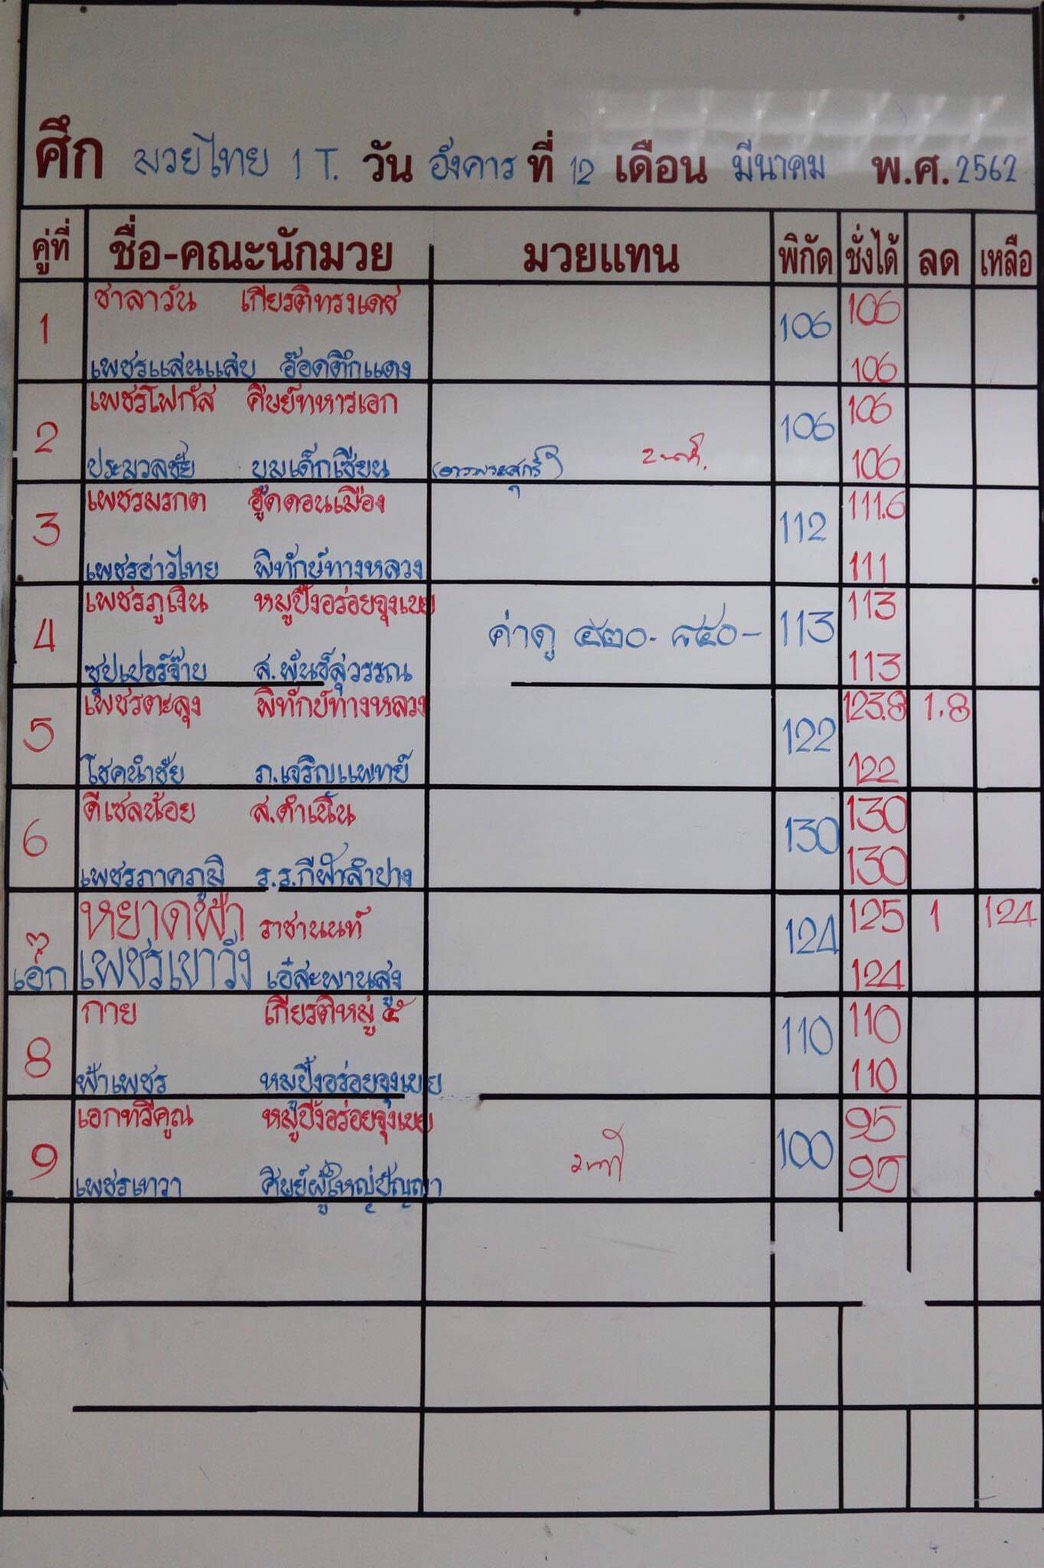 ศึก มวยไทย 1 T. วัน อังคาร ที่ 12 เดือน มีนาคม พ.ศ. 2562
คู่ที่ ชื่อ-คณะนักมวย มวยแทน พิกัด ชั่งได้ ลด เหลือ
1 ชาลาวัน เกียรติทรงเดช 106 106
เพชรแสนแสบ อ๊อดตึกแดง 106
2 เพชรโฟกัส ศิษย์ทหารเอก 106 106
ประมวลชัย ยมเด็กเซียน 106
3 เพชรมรกต อู๊ดดอนเมือง 112 111.6
เพชรอ่าวไทย พิทักษ์ทางหลวง 111
4 เพชรภูเงิน หมูปิ้งอร่อยจุงเบย ค่าดู ๕๒๐- ๘๕๐- 113 113
ซุปเปอร์จ๊าย ส.พันธ์สุวรรณ 113
5 เพชรตะลุง พิทักษ์ทางหลวง 122 123.8 1.8
โชคนำชัย ภ.เจริญแพทย์ 122
6 ดีเซลน้อย ส.ดำเนิน 130 130
เพชรภาคภูมิ ร.ร.กีฬาลำปาง 130
๗ หยาดฟ้า ราชานนท์ 124 125 1 124
เอ๊ก เพชรเขาวัง เอ๋สะพานสูง 124
8 กาย เกียรติหมู่ ๕ 110 110
ฟ้าเพชร หมูปิ้งอร่อยจุงเบย 110
9 เอกทวีคูณ หมูปิ้งอร่อยจุงเบย 100 95
เพชรเทวา ศิษย์ผู้ใหญ่ปัญญา 95